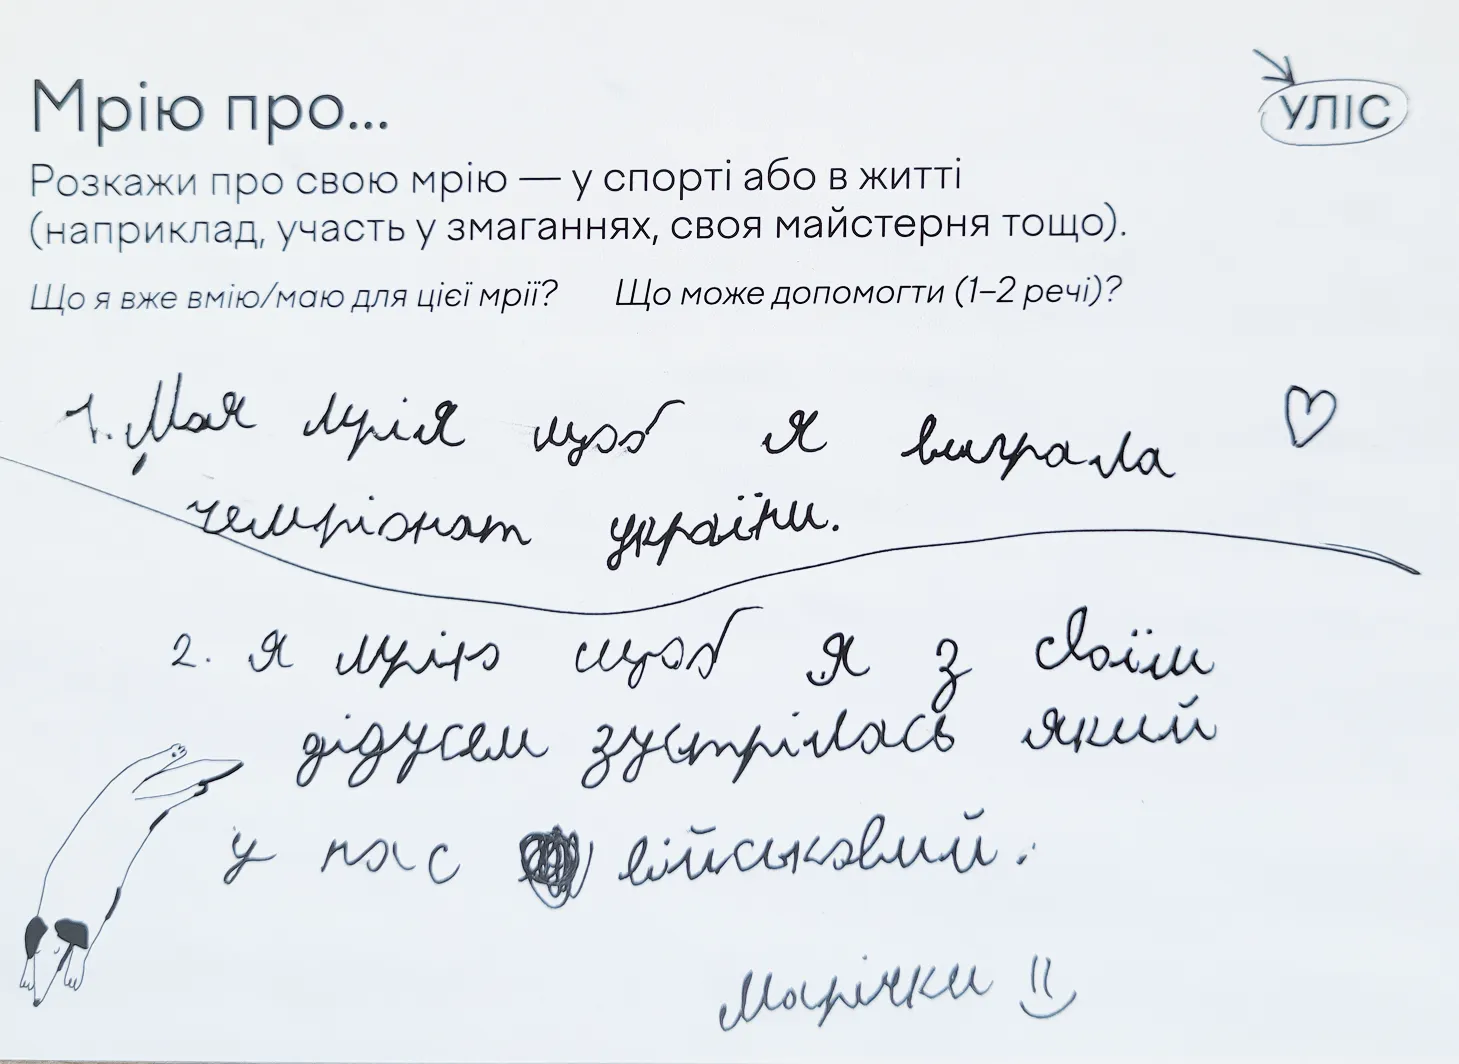 Мрію про...
УЛІС
Розкажи про свою мрію — у спорті або в житті
(наприклад, участь у змаганнях, своя майстерня тощо).
Що я вже вмію/маю для цієї мрії? Що може допомогти (1–2 речі)?
1. Моя мрія щоб я виграла
чемпіонат україни.
2. Я мрію щоб я з своїм
дідусем зустрілась який
у нас військовий.
Марічки